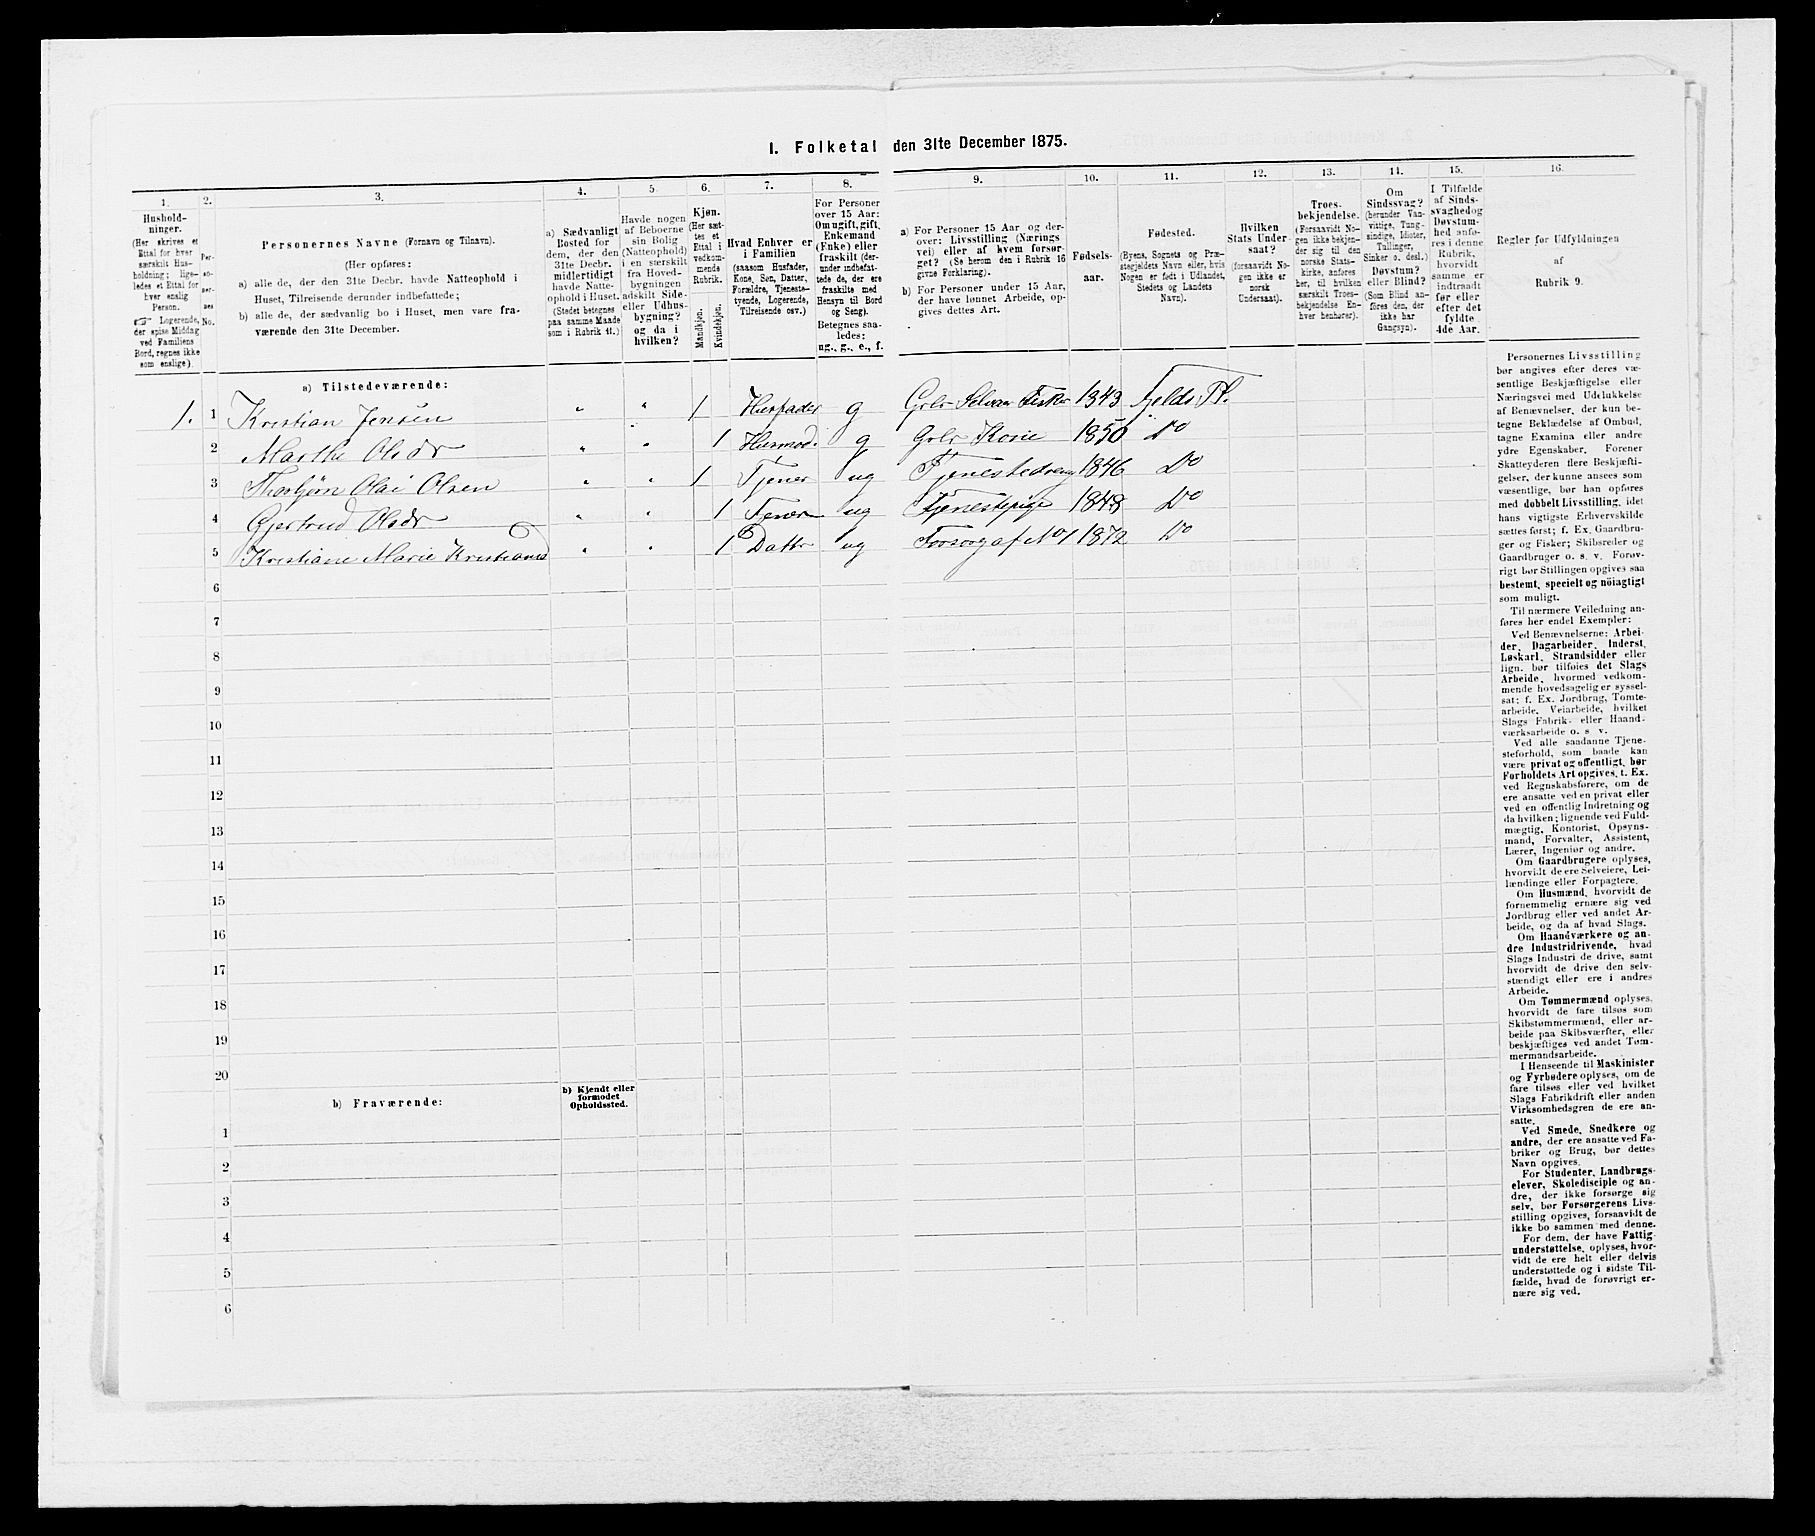 I. Folketal den 31te December 1875.
1. 2. 3. 4. 5. 6. 7. 8. 9. 10. 11. 12. 13. 14. 15. 16.
Hushold-
ninger.
(Her skrives et
Ettal for hver
særskilt Hus-
holdning; lige-
ledes et Ettal for
hver enslig
Person.
☞ Logerende,
der spise Middag
ved Familiens
Bord, regnes ikke
som enslige).
Per-
so-
ner-
nes
No.
Personernes Navne (Fornavn og Tilnavn).
(Her opføres:
a) alle de, der den 31te Decbr. havde Natteophold i
Huset, Tilreisende derunder indbefattede;
b) alle de, der sædvanlig bo i Huset, men vare fra-
værende den 31te December.
a) Sædvanligt
Bosted for
dem, der den
31te Decbr.
midlertidigt
havde Natte-
ophold i Huset.
(Stedet betegnes
paa samme Maade
som i Rubrik 11.)
Havde nogen
af Beboerne
sin Bolig
(Natteophold)
i en særskilt
fra Hoved-
bygningen
adskilt Side-
eller Udhus-
bygning?
og da i
hvilken?
Kjøn.
(Her sæt-
tes et
Ettal i
vedkom-
mende
Rubrik.
Mandkjøn.
Kvindekjøn.
Hvad Enhver er
i Familien
(saasom Husfader,
Kone, Søn, Datter,
Forældre, Tjeneste-
tyende, Logerende,
Tilreisende osv.)
For Personer
over 15 Aar:
Om ugift, gift,
Enkemand
(Enke) eller
fraskilt (der-
under indbefat-
tede de, der ere
fraskilte med
Hensyn til Bord
og Seng).
Betegnes saa-
ledes:
ug., g., e., f.
a) For Personer 15 Aar og der-
over: Livsstilling (Nærings-
vei) eller af hvem forsør-
get? (Se herom den i Rubrik 16
givne Forklaring).
b) For Personer under 15 Aar,
der have lønnet Arbeide, op-
gives dettes Art.
Fødsels-
aar.
Fødested.
(Byens, Sognets og Præ-
stegjeldets Navn eller, hvis
Nogen er født i Udlandet,
Stedets og Landets
Navn).
Hvilken
Stats Under-
saat?
(forsaavidt No-
gen ikke er
norsk
Undersaat).
Troes-
bekjendelse.
(Forsaavidt No-
gen ikke bekjen-
der sig til den
norske Stats-
kirke, anføres
her, til hvilken
særskilt Troes-
bekjendelse En-
hver henhører).
Om
Sindssvag?
(herunder Van-
vittige, Tung-
sindige, Idioter,
Tullinger,
Sinker o. desl.)
Døvstum?
eller Blind?
(Som Blind an-
føres den, der
ikke har
Gangsyn).
I Tilfælde
af Sinds-
svaghed og
Døvstum-
hed anfø-
res i denne
Rubrik,
hvorvidt
samme er
indtraadt
før eller
efter det
fyldte
4de Aar.
Regler for Udfyldningen
af
Rubrik 9.
a) Tilstedeværende:
1. 1 Kristian Jensen " " 1 Husfader g Gbr Selveier Fisker 1843 Fjelds Pr.
2 Marthe Olsdr " " 1 Husmod. g Gbr Kone 1850 Do
3 Thorbjørn Olai Olsen " " 1 Tjener ug Tjenestedreng 1846 Do
4 Gjertrud Olsdr " " 1 Tjener ug Tjenestepige 1848 Do
5 Kristiane Marie Kristiansd " " 1 Datter ug Forsørg af No 1 1872 Do
6
7
8
9
10
11
12
13
14
15
16
17
18
19
20
b) Fraværende:
b) Kjendt eller
formodet
Opholdssted.
1
2
3
4
5
6
Personernes Livsstilling
bør angives efter deres væ-
sentlige Beskjæftigelse eller
Næringsvei med Udelukkelse
af Benævnelser, der kun be-
tegne Beklædelse af Ombud,
tagne Examina eller andre
ydre Egenskaber. Forener
Skatteyderen flere Beskjæfti-
gelser, der kunne ansees som
væsentlige, bør han opføres
med dobbelt Livsstilling, idet
hans vigtigste Erhvervskilde
sættes først; f. Ex. Gaardbru-
ger og Fisker; Skibsreder og
Gaardbruger o. s. v. Forøv-
rigt bør Stillingen opgives saa
bestemt, specielt og nöiagtigt
som muligt.
Til nærmere Veiledning an-
føres her endel Exempler:
Ved Benævnelserne: Arbei-
der, Dagarbeider, Inderst,
Løskarl, Strandsidder eller
lign. bør tilføies det Slags
Arbeide, hvormed vedkom-
mende hovedsagelig er syssel-
sat; f. Ex. Jordbrug, Tomte-
arbeide, Veiarbeide, hvilket
Slags Fabrik- eller Haand-
værksarbeide o. s v.
Ved alle saadanne Tjene-
steforhold, som baade kan
være privat og offentligt, bør
Forholdets Art opgives, t. Ex.
ved Regnskabsførere, om de
ere ansatte ved en privat eller
ved en offentlig Indretning og
da hvilken; lignende ved Fuld-
mægtig, Kontorist, Opsyns-
mand, Forvalter, Assistent,
Lærer, Ingeniør og andre.
Om Gaardbrugere oplyses,
hvorvidt de ere Selveiere, Lei-
lændinge eller Forpagtere.
Om Husmænd, hvorvidt de
fornemmelig ernære sig ved
Jordbrug eller ved andet Ar-
beide, og da af hvad Slags.
Om Haandværkere og an-
dre Industridrivende, hvad
Slags Industri de drive, samt
hvorvidt de drive den selv-
stændigt eller ere i andres
Arbeide.
Om Tømmermænd oplyses,
hvorvidt de fare tilsøs som
Skibstømmermænd, eller ar-
beide paa Skibsværfter, eller
beskjæftiges ved andet Tøm-
mermandsarbeide.
I Henseende til Maskinister
og Fyrbødere oplyses, om de
fare tilsøs eller ved hvilket
Slags Fabrikdrift eller anden
Virksomhedsgren de ere an-
satte.
Ved Smede, Snedkere og
andre, der ere ansatte ved Fa-
briker og Brug, bør dettes
Navn opgives.
For Studenter, Landbrugs-
elever, Skoledisciple og an-
dre, der ikke forsørge sig
selv, bør Forsørgerens Livs-
stilling opgives, forsaavidt de
ikke bo sammen med denne.
For dem, der have Fattig-
understøttelse, oplyses, hvor-
vidt de ere helt eller delvis
understøttede og i sidste Til-
fælde, hvad de forøvrigt er-
nære sig ved.